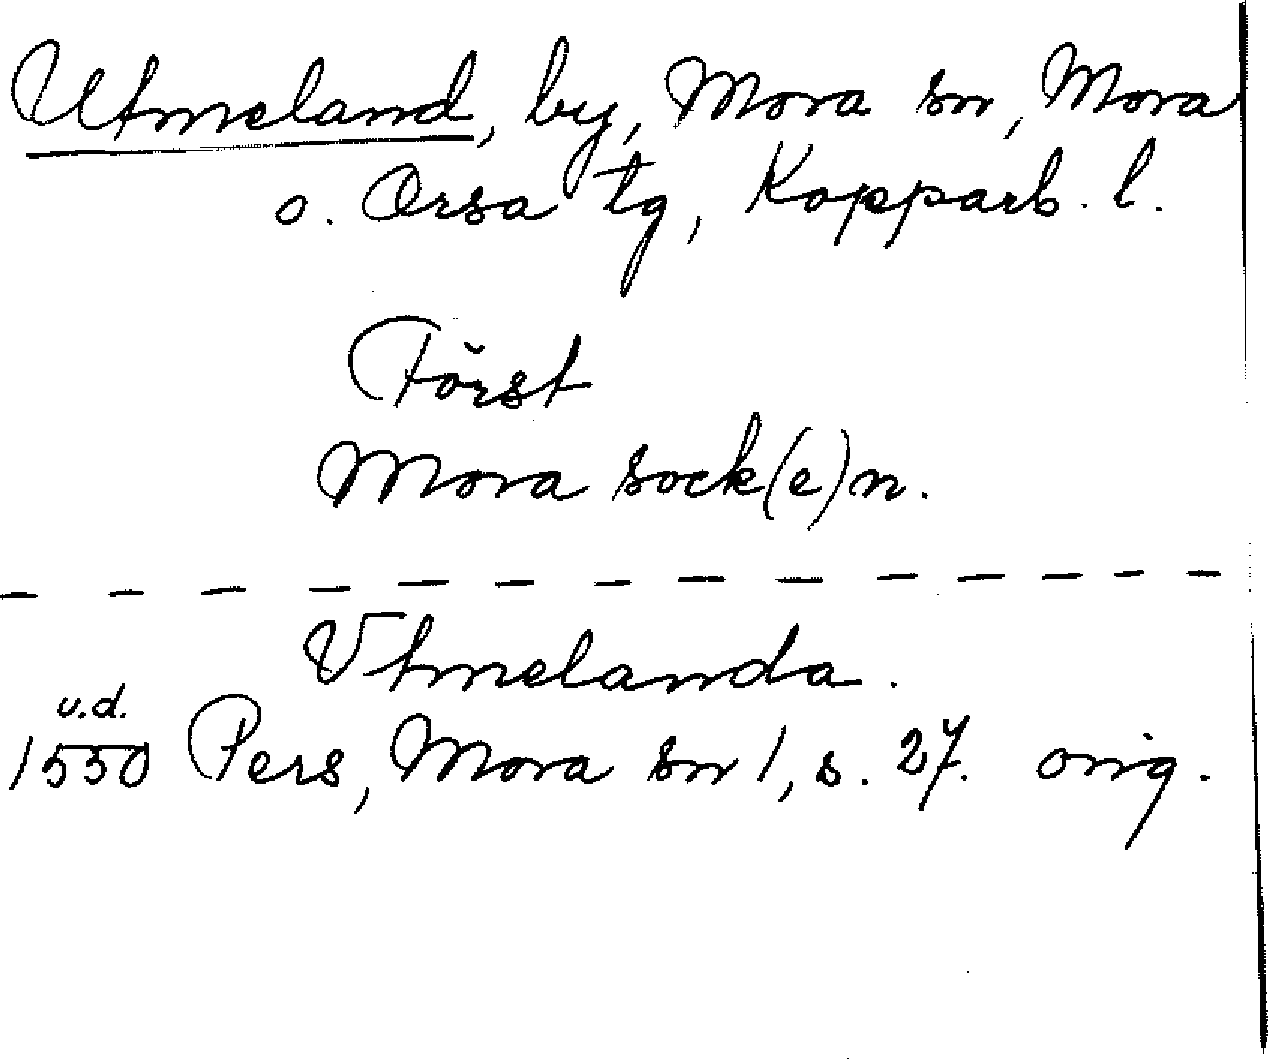 Utmeland, by, Mora sn, Mora
o. Orsa tg, Kopparb. l.
Först
Mora sock(e)n.
Vtmelanda.
u.d.
1550 Pers, Mora sn 1, s. 27. orig.